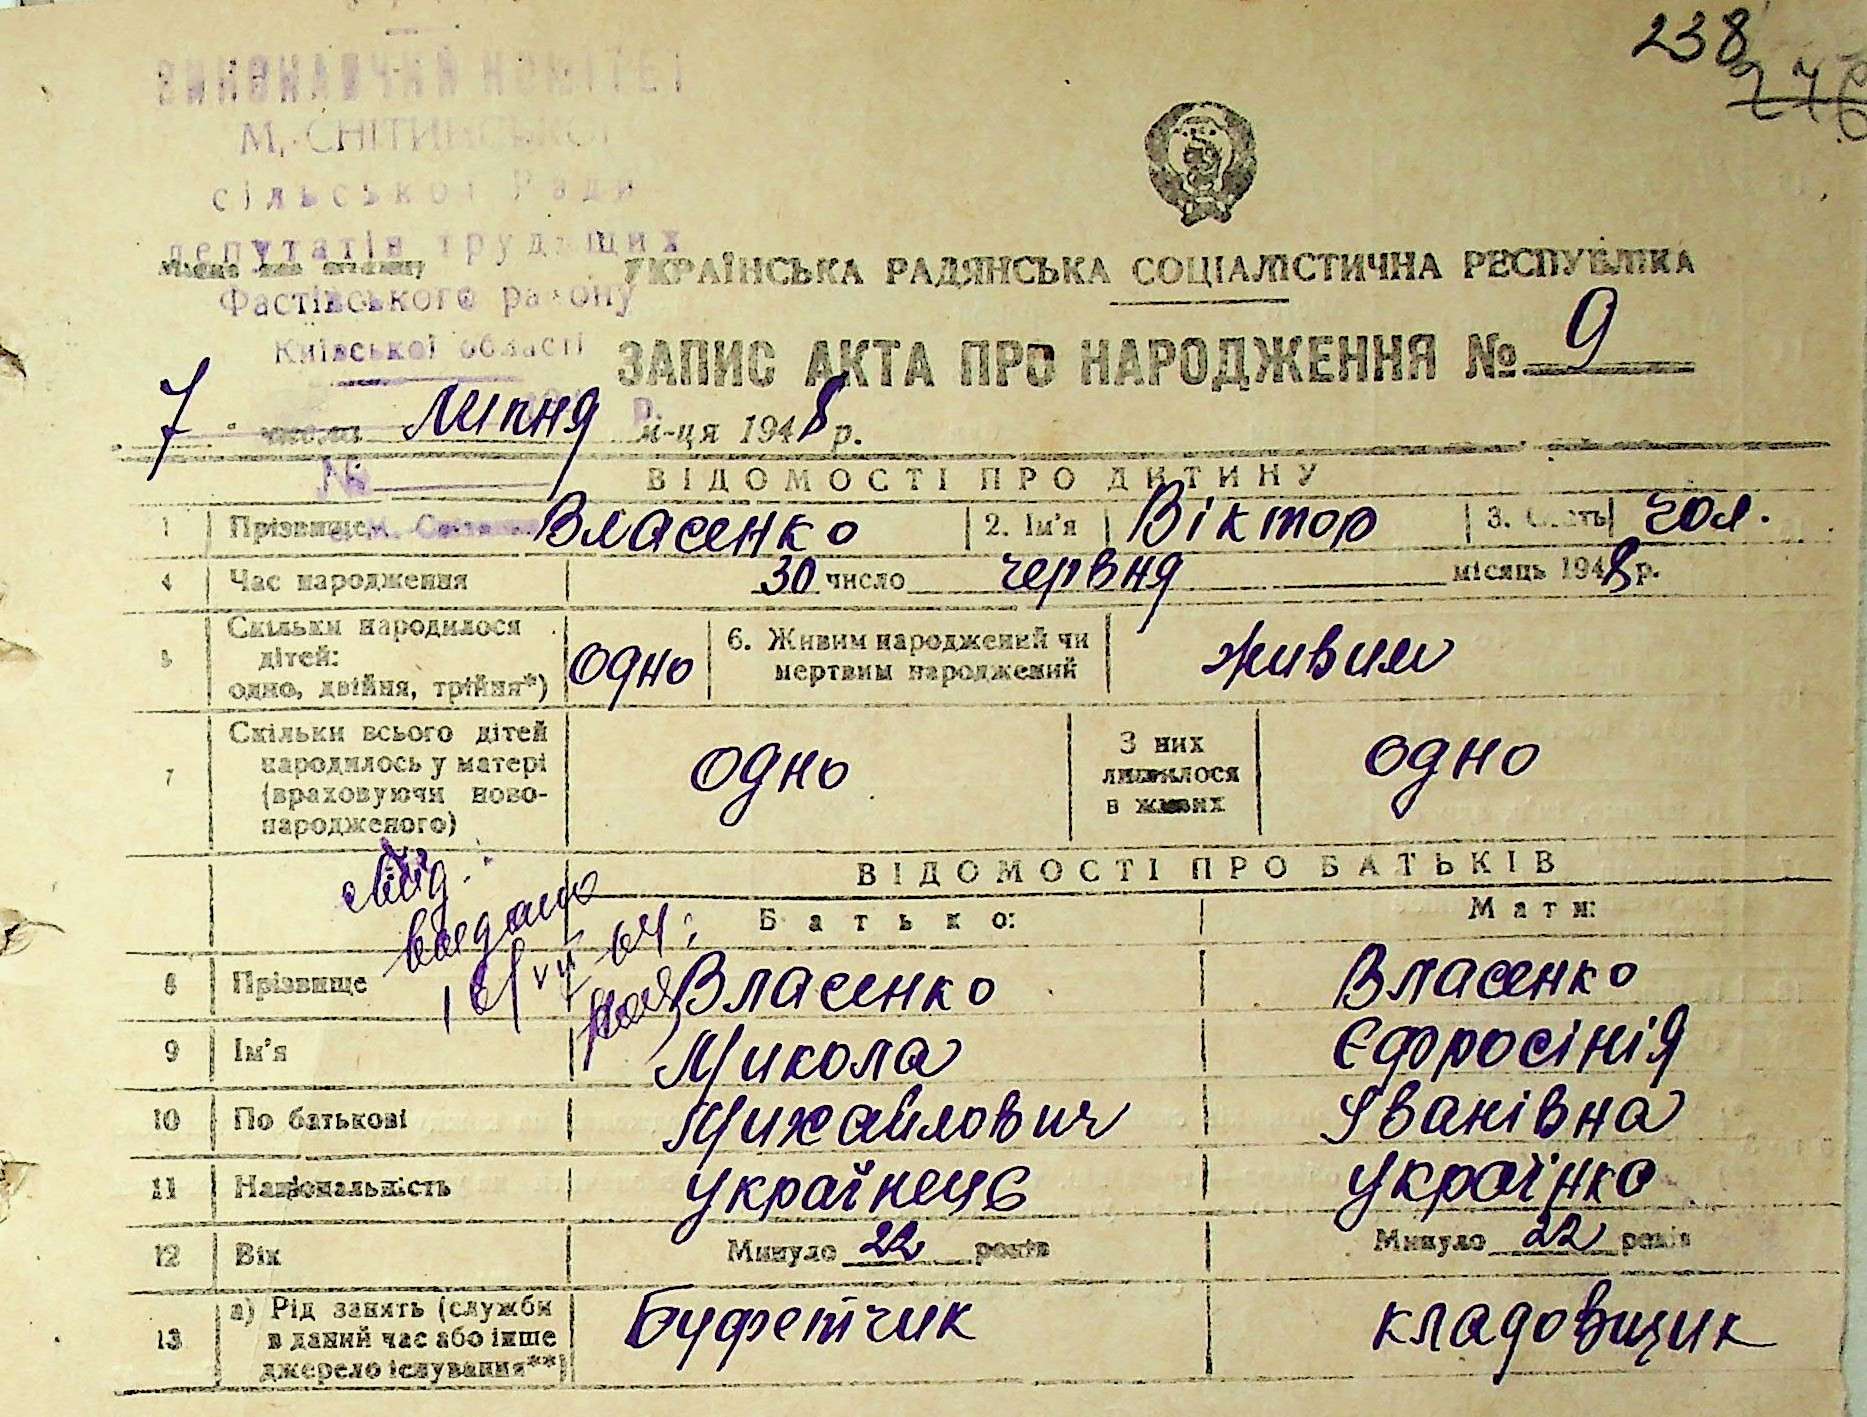 238
246
ВИКОНАВЧИЙ КОМІТЕТ
М. СНІТИНСЬКОЇ
сільської Ради
депутатів трудящих
Фастівського району
Київської області
УКРАЇНСЬКА РАДЯНСЬКА СОЦІАЛІСТИЧНА РЕСПУБЛІКА
ЗАПИС АКТА ПРО НАРОДЖЕННЯ № 9
7 числа липня м-ця 1948 р.
№
ВІДОМОСТІ ПРО ДИТИНУ
1 Прізвище Власенко 2. Ім'я Віктор 3. Стать чол.
4 Час народження 30 число червня місяць 1948 р.
5 Скільки народилося дітей: одно, двійня, трійня*) одно 6. Живим народжений чи мертвим народжений живим
7 Скільки всього дітей народилось у матері (враховуючи новонародженого) одно З них лишилося в живих одно
ВІДОМОСТІ ПРО БАТЬКІВ
Батько: Мати:
видано
16/VII 64
8 Прізвище Власенко Власенко
9 Ім'я Микола Єфросінія
10 По батькові Михайлович Іванівна
11 Національність українець українка
12 Вік Минуло 22 років Минуло 22 років
13 а) Рід занять (служби в даний час або інше джерело існування**) Буфетчик кладовщик